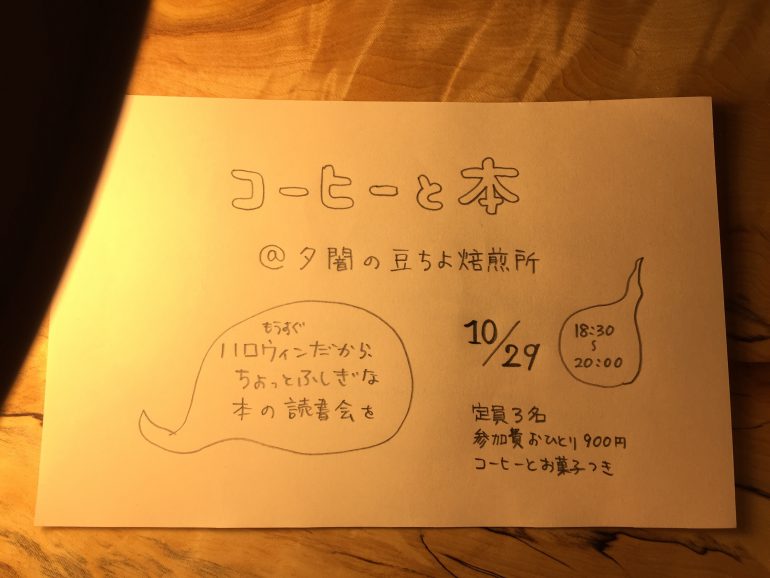 コーヒーと本
@夕闇の豆ちよ焙煎所
もうすぐ
ハロウィンだから、
ちょっとふしぎな
本の読書会を
10/29
18:30
~
20:00
定員3名
参加費おひとり900円
コーヒーとお菓子つき